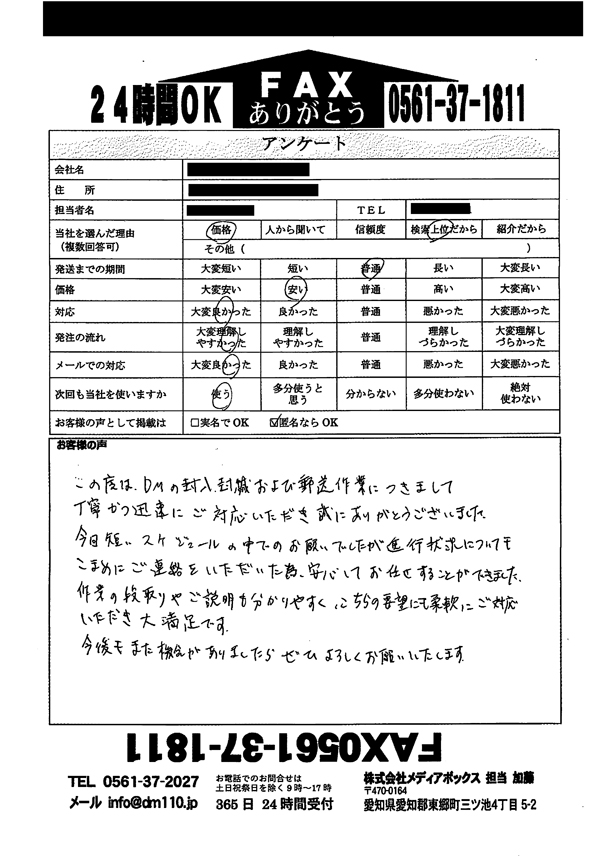 24時間OK
FAX
ありがとう
0561-37-1811
アンケート
会社名
住 所
担当者名 TEL
当社を選んだ理由
(複数回答可)
価格 人から聞いて 信頼度 検索上位だから 紹介だから
その他 ( )
発送までの期間 大変短い 短い 普通 長い 大変長い
価格 大変安い 安い 普通 高い 大変高い
対応 大変良かった 良かった 普通 悪かった 大変悪かった
発注の流れ 大変理解しやすかった 理解しやすかった 普通 理解しづらかった 大変理解しづらかった
メールでの対応 大変良かった 良かった 普通 悪かった 大変悪かった
次回も当社を使いますか 使う 多分使うと思う 分からない 多分使わない 絶対使わない
お客様の声として掲載は □実名でOK ☑匿名ならOK
お客様の声
この度は、DMの封入、封緘および郵送作業につきまして
丁寧かつ迅速にご対応いただき誠にありがとうございました。
今回短いスケジュールの中でのお願いでしたが進行状況についても
こまめにご連絡をいただいた為、安心してお任せすることができました。
作業の段取りやご説明も分かりやすく、こちらの要望にも柔軟にご対応
いただき大満足です。
今後もまた機会がありましたらぜひよろしくお願いいたします。
FAX0561-37-1811
TEL 0561-37-2027
メール info@dm110.jp
お電話でのお問合せは
土日祝祭日を除く9時~17時
365日 24時間受付
株式会社メディアボックス 担当 加藤
〒470-0164
愛知県愛知郡東郷町三ツ池4丁目5-2